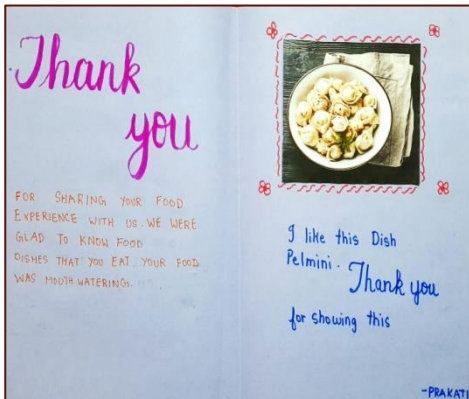 Thank
you
FOR SHARING YOUR FOOD
EXPERIENCE WITH US. WE WERE
GLAD TO KNOW FOOD
DISHES THAT YOU EAT. YOUR FOOD
WAS MOUTH WATERING.
I like this Dish
Pelmini. Thank you
for showing this
-PRAKATI